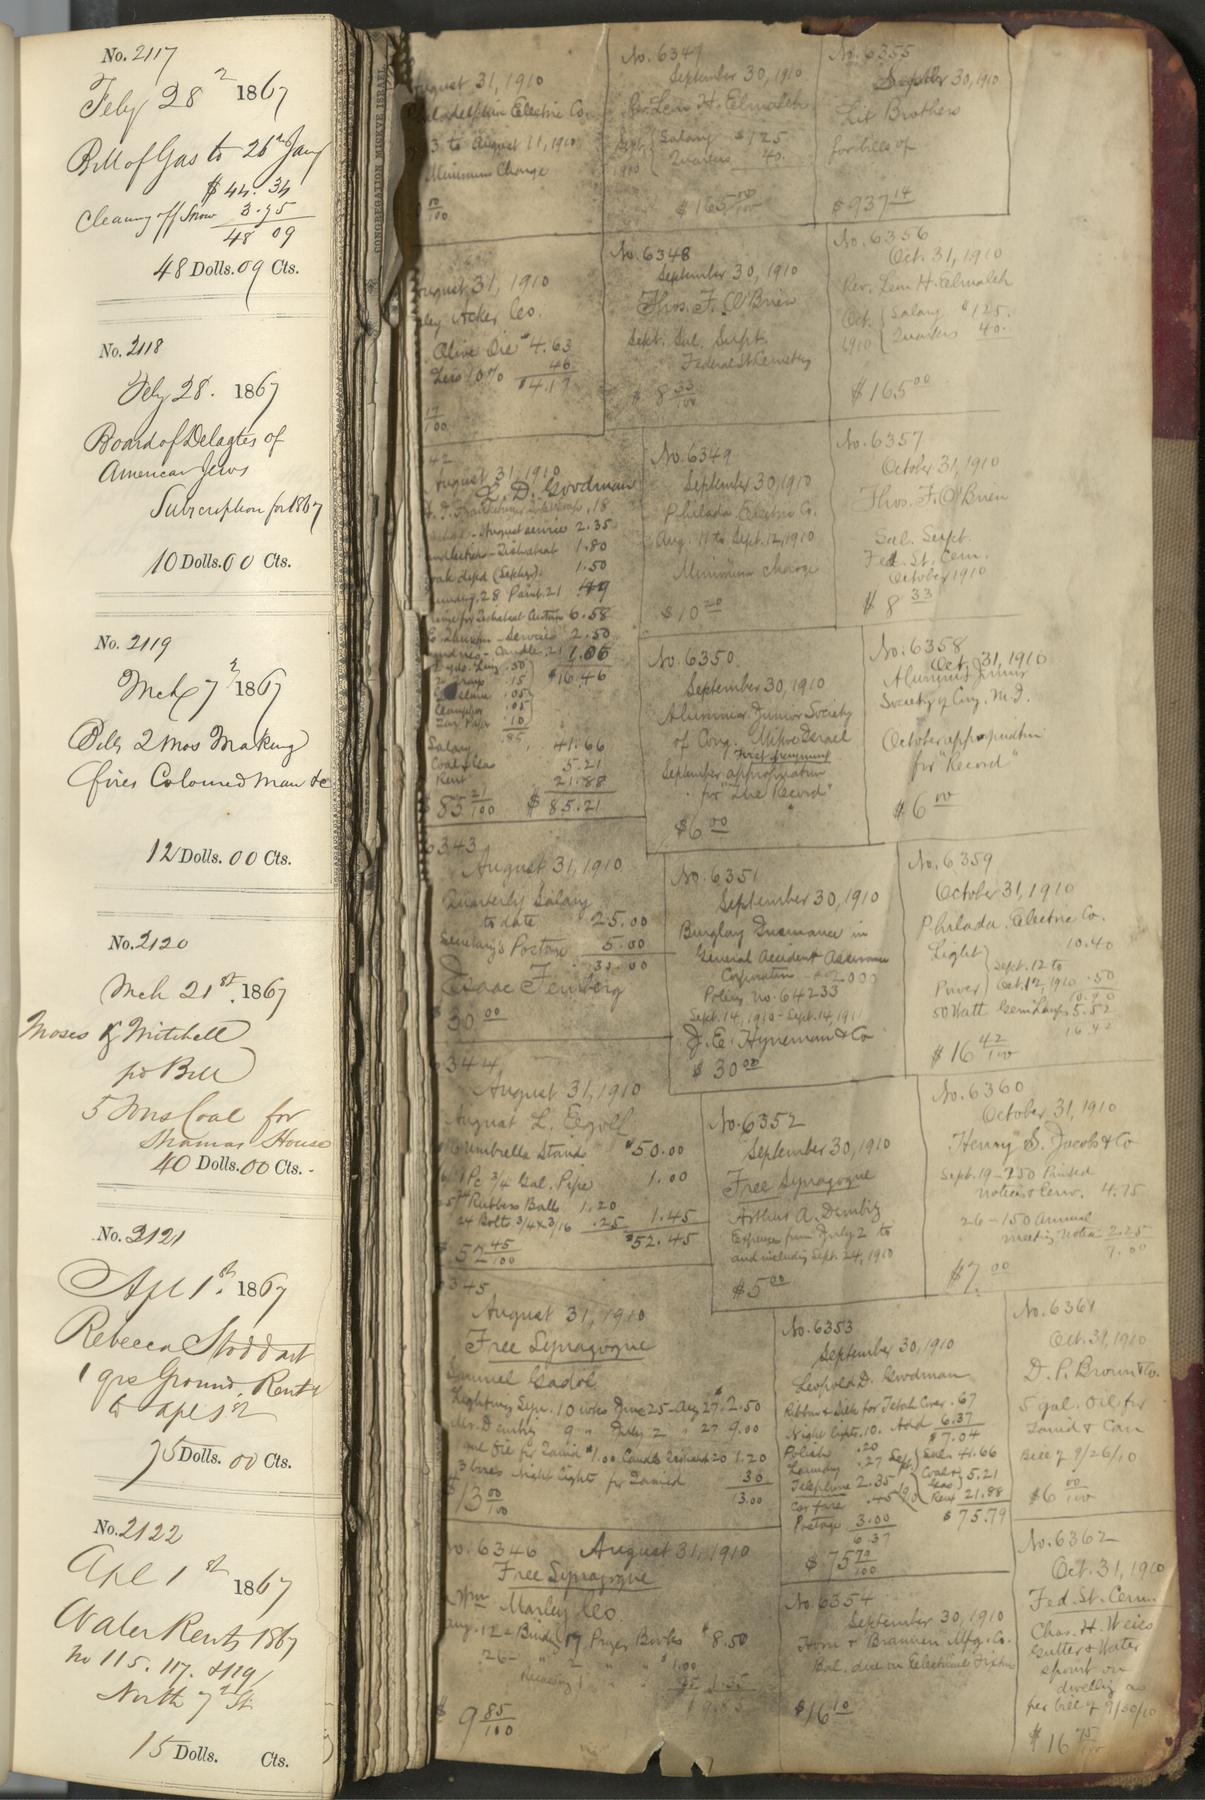 No. 2117
Feby 28 1867
Bill of Gas to 26 Jany
$44.34
Cleaning off Snow 3.75
48 09
48 Dolls. 09 Cts.
No. 2118
Feby 28. 1867
Board of Delagtes of
American Jews
Subscription for 1867
10 Dolls. 00 Cts.
No. 2119
Mch 7 1867
Bill 2 Mos Making
fires Coloured Man &c
12 Dolls. 00 Cts.
No. 2120
Mch 21st. 1867
Moses Mitchell
pr Bill
5 Tons Coal for
Shamas House
40 Dolls. 00 Cts.
No. 2121
Apl 1st. 1867
Rebecca Stoddart
1 qrs Ground Rent
to apl 1st
75 Dolls. 00 Cts.
No. 2122
Apl 1st 1867
Water Rents 1867
No 115. 117. & 119
North 7th St
15 Dolls. Cts.
CONGREGATION MIKVE ISRAEL
August 31, 1910
Philadelphia Electric Co.
to August 11, 1910
Minimum Charge
August 31, 1910
Acker Co.
Olive Oil $4.63
Less 10% 46
$4.17
August 31, 1910
L. D. Goodman
August service 2.35
1.80
1.50
6.58
Services 2.50
Candle .21 1.06
$16.46
Salary 41.66
Coal & Gas 5.21
Rent 21.88
$85 21/100 $85.21
6343
August 31, 1910
Quarterly Salary
to date 25.00
Secretary's Postage 5.00
30.00
Isaac Feinberg
30 00
6344
August 31, 1910
August L.
Umbrella Stand $50.00
1 Pc 3/4 Gal. Pipe 1.00
Rubber Balls 1.20
24 Bolts 3/4 x 3/16 .25 1.45
$52.45
52 45/100
6345
August 31, 1910
Free Synagogue
Samuel Gadol
Lighting Syn. 10 wks June 25-Aug 27. $2.50
Mr. Dembitz 9 " July 2 " 27 9.00
gal Oil for Tamid $1.00 Candle 20 1.20
3 boxes Night lights for Tamid 30
13.00
$13 00/100
No. 6346 August 31, 1910
Free Synagogue
Wm Marley Co
Aug. 12 - Binding 17 Prayer Books $8.50
26 - 2 " " $1.00
1.35
9.85
$9 85/100
No. 6347
September 30, 1910
Rev. Leon H. Elmaleh
Sept. Salary $125
1910 Quarters 40.
$165 00/100
No. 6348
September 30, 1910
Thos. F. O'Brien
Sept. Sal. Supt.
Federal St Cemetery
$8 33/100
No. 6349
September 30, 1910
Philada. Electric Co.
Aug. 11 to Sept. 12, 1910
Minimum charge
$10 20
No. 6350
September 30, 1910
Alumni Junior Society
of Cong. Mikve Israel
First payment
September appropriation
for "The Record"
$6 00
No. 6351
September 30, 1910
Burglary Insurance in
General Accident Assurance
Corporation - $2000
Policy No. 64233
Sept. 14, 1910 - Sept. 14, 1911
J. E. Hyneman & Co
$30 00
No. 6352
September 30, 1910
Free Synagogue
Arthur A. Dembitz
Expenses from July 2 to
and including Sept. 24, 1910
$5 00
No. 6353
September 30, 1910
Leopold D. Goodman
Ribbon & Silk for Tebah Cover .67
Night lights .10. Add 6.37
$7.04
Polish .20
Laundry .27 Sept. Sal. 41.66
Telephone 2.35 1910 Coal & Gas 5.21
Car fare .45 Rent 21.88
Postage 3.00 $75.79
6.37
$75 79/100
No. 6354
September 30, 1910
Horn & Brannen Mfg. Co.
Bal. due on Electrical Fixtures
$16 10
No. 6355
September 30, 1910
Lit Brothers
for bills of
$937 14
No. 6356
Oct. 31, 1910
Rev. Leon H. Elmaleh
Oct. Salary $125.
1910 Quarters 40.
$165 00
No. 6357
October 31, 1910
Thos. F. O'Brien
Sal. Supt.
Fed. St. Cem.
October 1910
$8 33
No. 6358
Oct. 31, 1910
Alumni Junior
Society of Cong. M. I.
October appropriation
for "Record"
$6 00
No. 6359
October 31, 1910
Philada. Electric Co.
Light 10.40
Sept. 12 to
Power Oct. 12, 1910 .50
10.90
50 Watt Gem Lamps 5.52
16.42
$16 42/100
No. 6360
October 31, 1910
Henry S. Jacobs & Co
Sept. 19 - 250 Printed
notices & Env. 4.75
26 - 150 Annual
meeting notices 2.25
7.00
$7. 00
No. 6361
Oct. 31, 1910
D. P. Brown & Co.
5 gal. Oil for
Tamid & Can
Bill of 9/26/10
$6 00/100
No. 6362
Oct. 31, 1910
Fed. St. Cem.
Chas. H. Weiss
Gutter & Water
spout on
dwelling as
per bill of 9/30/10
$16 75/100